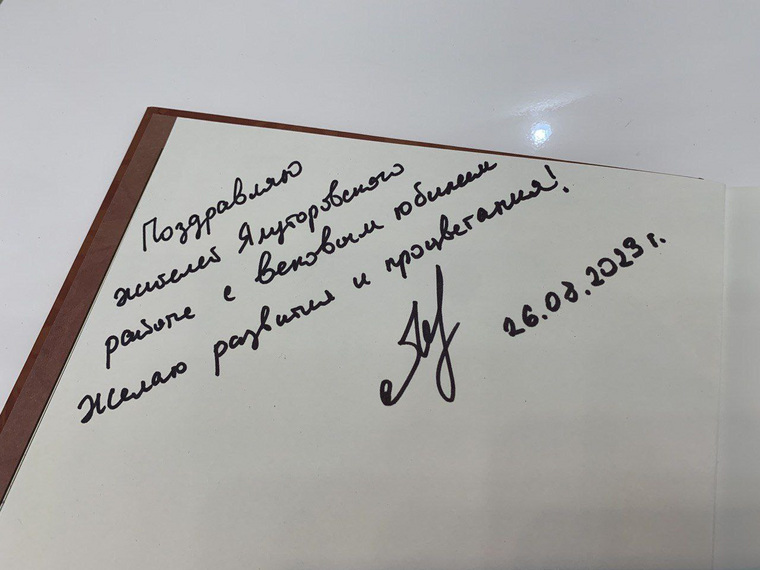 Поздравляю
жителей Ялуторовского
района с вековым юбилеем
Желаю развития и процветания!
26.08.2023 г.